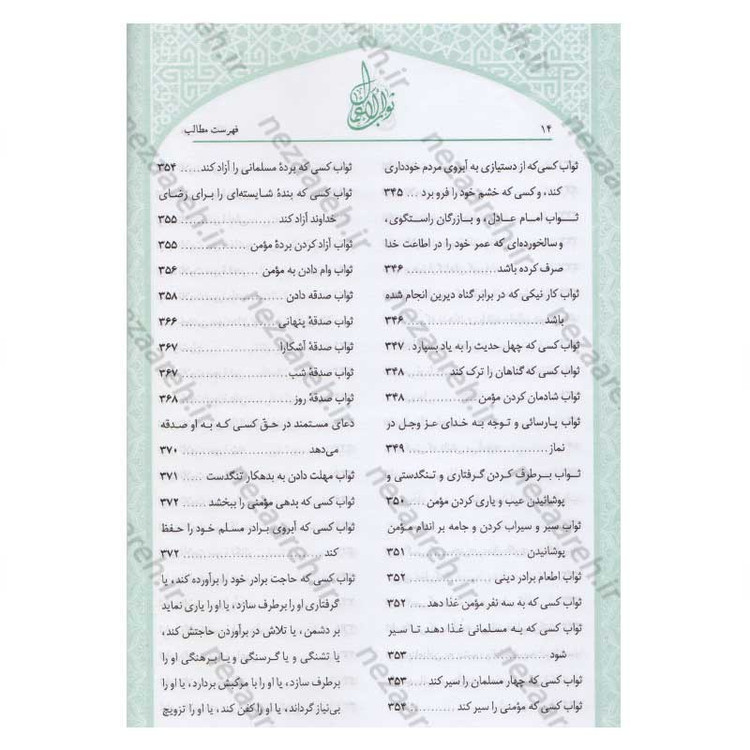 ثواب الاعمال
۱۴
فهرست مطالب
ثواب کسی‌که از دستیازی به آبروی مردم خودداری
کند، و کسی که خشم خود را فرو برد ... ۳۴۵
ثــواب امام عادل، و بازرگان راستگوی،
و سالخورده‌ای که عمر خود را در اطاعت خدا
صرف کرده باشد ................ ۳۴۶
ثواب کار نیکی که در برابر گناه دیرین انجام شده
باشد ......................... ۳۴۶
ثواب کسی که چهل حدیث را به یاد بسپارد . ۳۴۷
ثواب کسی که گناهان را ترک کند ..... ۳۴۸
ثواب شادمان کردن مؤمن ........... ۳۴۸
ثواب پارسائی و توجه به خدای عز وجل در
نماز ......................... ۳۴۹
ثــواب برطرف کردن گرفتاری و تنگدستی و
پوشانیدن عیب و یاری کردن مؤمن .... ۳۵۰
ثواب سیر و سیراب کردن و جامه بر اندام مؤمن
پوشانیدن ..................... ۳۵۱
ثواب اطعام برادر دینی ............ ۳۵۲
ثواب کسی که به سه نفر مؤمن غذا دهد .. ۳۵۲
ثواب کسی که به مسلمانی غذا دهد تا سیر
شود ......................... ۳۵۳
ثواب کسی که چهار مسلمان را سیر کند . ۳۵۳
ثواب کسی که مؤمنی را سیر کند ..... ۳۵۴
ثواب کسی که بردهٔ مسلمانی را آزاد کند ..... ۳۵۴
ثواب کسی که بندهٔ شایسته‌ای را برای رضای
خداوند آزاد کند ................ ۳۵۵
ثواب آزاد کردن بردهٔ مؤمن .......... ۳۵۵
ثواب وام دادن به مؤمن ............ ۳۵۶
ثواب صدقه دادن ................ ۳۵۸
ثواب صدقهٔ پنهانی ............... ۳۶۶
ثواب صدقهٔ آشکارا ............... ۳۶۷
ثواب صدقهٔ شب ................ ۳۶۷
ثواب صدقهٔ روز ................. ۳۶۸
دعای مستمند در حقّ کسی که به او صدقه
می‌دهد ...................... ۳۷۰
ثواب مهلت دادن به بدهکار تنگدست .... ۳۷۱
ثواب کسی که بدهی مؤمنی را ببخشد ... ۳۷۲
ثواب کسی که آبروی برادر مسلم خود را حفظ
کند ......................... ۳۷۲
ثواب کسی که حاجت برادر خود را برآورده کند، یا
گرفتاری او را برطرف سازد، یا او را یاری نماید
بر دشمن، یا تلاش در برآوردن حاجتش کند،
یا تشنگی و یا گرسنگی و یا برهنگی او را
برطرف سازد، یا او را با مرکبش بردارد، یا او را
بی‌نیاز گرداند، یا او را کفن کند، یا او را تزویج
nezaareh.ir